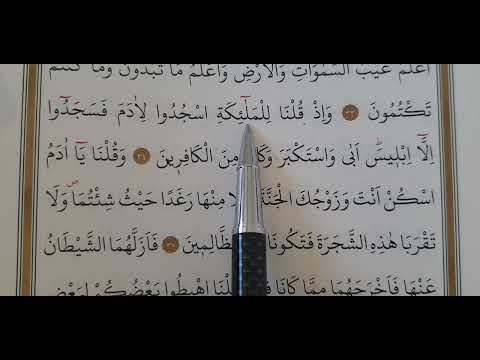 اَعْلَمُ غَيْبَ السَّمٰوَاتِ وَالْاَرْضِ وَاَعْلَمُ مَا تُبْدُونَ وَمَا كُنْتُمْ
تَكْتُمُونَ ٣٣ وَاِذْ قُلْنَا لِلْمَلٰٓئِكَةِ اسْجُدُوا لِاٰدَمَ فَسَجَدُٓوا
اِلَّٓا اِبْل۪يسَۜ اَبٰى وَاسْتَكْبَرَ مِنَ الْكَافِر۪ينَ ٣٤ وَقُلْنَا يَٓا اٰدَمُ
اسْكُنْ اَنْتَ وَزَوْجُكَ الْجَنَّةَ مِنْهَا رَغَدًا حَيْثُ شِئْتُمَاۖ وَلَا
تَقْرَبَا هٰذِهِ الشَّجَرَةَ فَتَكُونَا الظَّالِم۪ينَ ٣٥ فَاَزَلَّهُمَا الشَّيْطَانُ
عَنْهَا فَاَخْرَجَهُمَا مِمَّا كَانَا اهْبِطُوا بَعْضُكُمْ لِبَعْضٍ